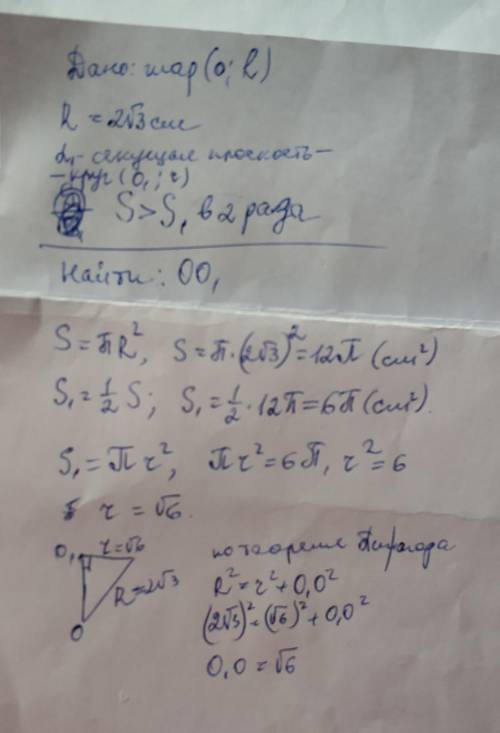 Дано: шар (O; R)
R = 2√3 см
α₁ - секущая плоскость -
- круг (O₁; r)
S > S₁ в 2 раза
Найти: OO₁
S = πR², S = π·(2√3)² = 12π (см²)
S₁ = 1/2 S; S₁ = 1/2 · 12π = 6π (см²).
S₁ = πr², πr² = 6π, r² = 6
r = √6.
O₁ r = √6 по теореме Пифагора
R = 2√3 R² = r² + O₁O²
(2√3)² = (√6)² + O₁O²
O
O₁O = √6